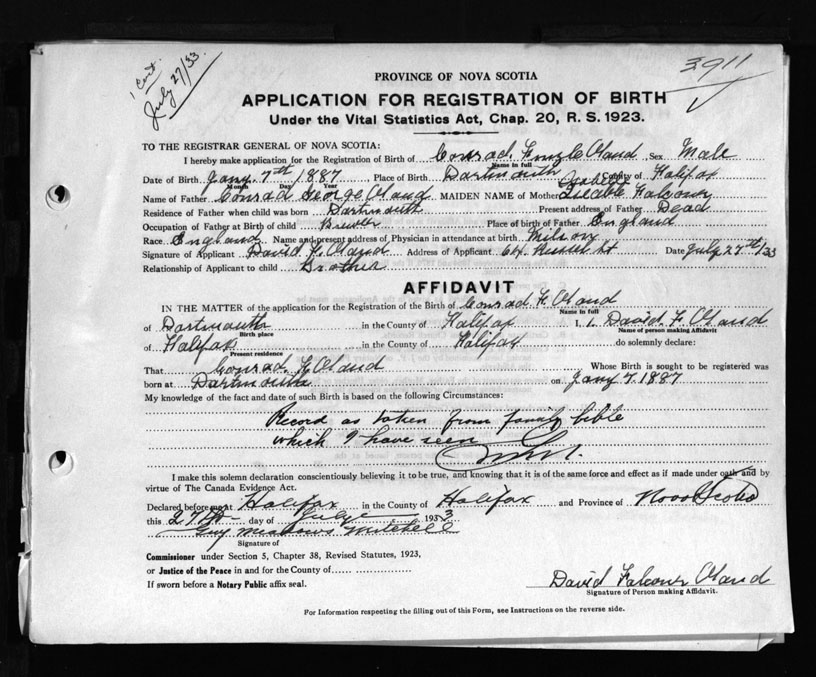 1 Cert.
July 27/33.
3911
PROVINCE OF NOVA SCOTIA
APPLICATION FOR REGISTRATION OF BIRTH
Under the Vital Statistics Act, Chap. 20, R. S. 1923.
TO THE REGISTRAR GENERAL OF NOVA SCOTIA:
I hereby make application for the Registration of Birth of Conrad Oland Sex Male
Name in full
Date of Birth Jany. 7th 1887 Place of Birth Dartmouth County of Halifax
Month Day Year
Name of Father Conrad George Oland MAIDEN NAME of Mother Falconer
Residence of Father when child was born Dartmouth Present address of Father Dead
Occupation of Father at Birth of child Brewer Place of birth of Father England
Race England Name and present address of Physician in attendance at birth
Signature of Applicant David F. Oland Address of Applicant 64 Date July 27th/33
Relationship of Applicant to child Brother
AFFIDAVIT
IN THE MATTER of the application for the Registration of the Birth of Conrad F. Oland
Name in full
of Dartmouth in the County of Halifax I, David F. Oland
Birth place Name of person making Affidavit
of Halifax in the County of Halifax do solemnly declare:
Present residence
That Conrad F. Oland Whose Birth is sought to be registered was
born at Dartmouth on Jany 7. 1887
My knowledge of the fact and date of such Birth is based on the following Circumstances:
Record as taken from family bible
which I have seen
I make this solemn declaration conscientiously believing it to be true, and knowing that it is of the same force and effect as if made under oath and by
virtue of The Canada Evidence Act.
Declared before me at Halifax in the County of Halifax and Province of Nova Scotia
this 27th day of July 1933
Guy Meadows Mitchell
Signature of
Commissioner under Section 5, Chapter 38, Revised Statutes, 1923,
or Justice of the Peace in and for the County of
If sworn before a Notary Public affix seal.
David Falconer Oland
Signature of Person making Affidavit.
For Information respecting the filling out of this Form, see Instructions on the reverse side.